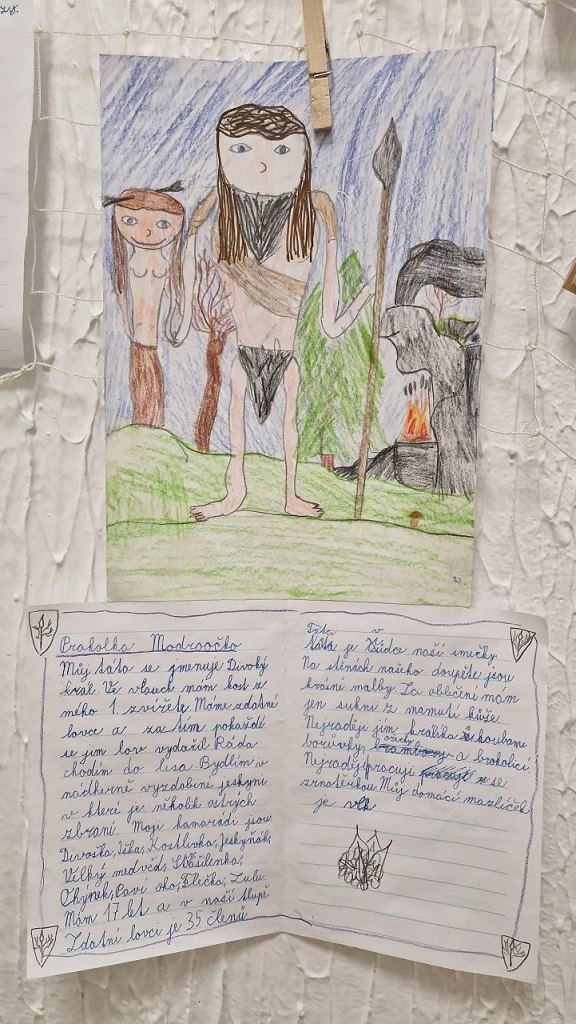 Praholka Modroočko
Můj táta se jmenuje Divoký
král. Ve vlasech mám kost z
mého 1 zvířete. Máme zdatné
lovce a za tím pokaždé
se jim lov vydařil. Ráda
chodím do lesa. Bydlím v
nádherně vyzdobené jeskyni
v které je několik ostrých
zbraní. Moji kamarádi jsou
Divoška, Kostlivka, Jeskyňák,
Velký medvěd, Strašilenka,
Chynek, Paví oko, Flečka, Lulu.
Mám 17 let a v naší tlupě
Zdatní lovci je 35 členů
Táta
táta je Vůdce naší smečky.
Na stěnách našeho doupěte jsou
krásné malby. Za oblečení mám
jen sukni z mamutí kůže.
Nejraději jím králíka s houbami
ořechy
borůvky, brambory a brokolici
Nejraději pracuji se
srnotěrkou. Můj domácí mazlíček
je vlk